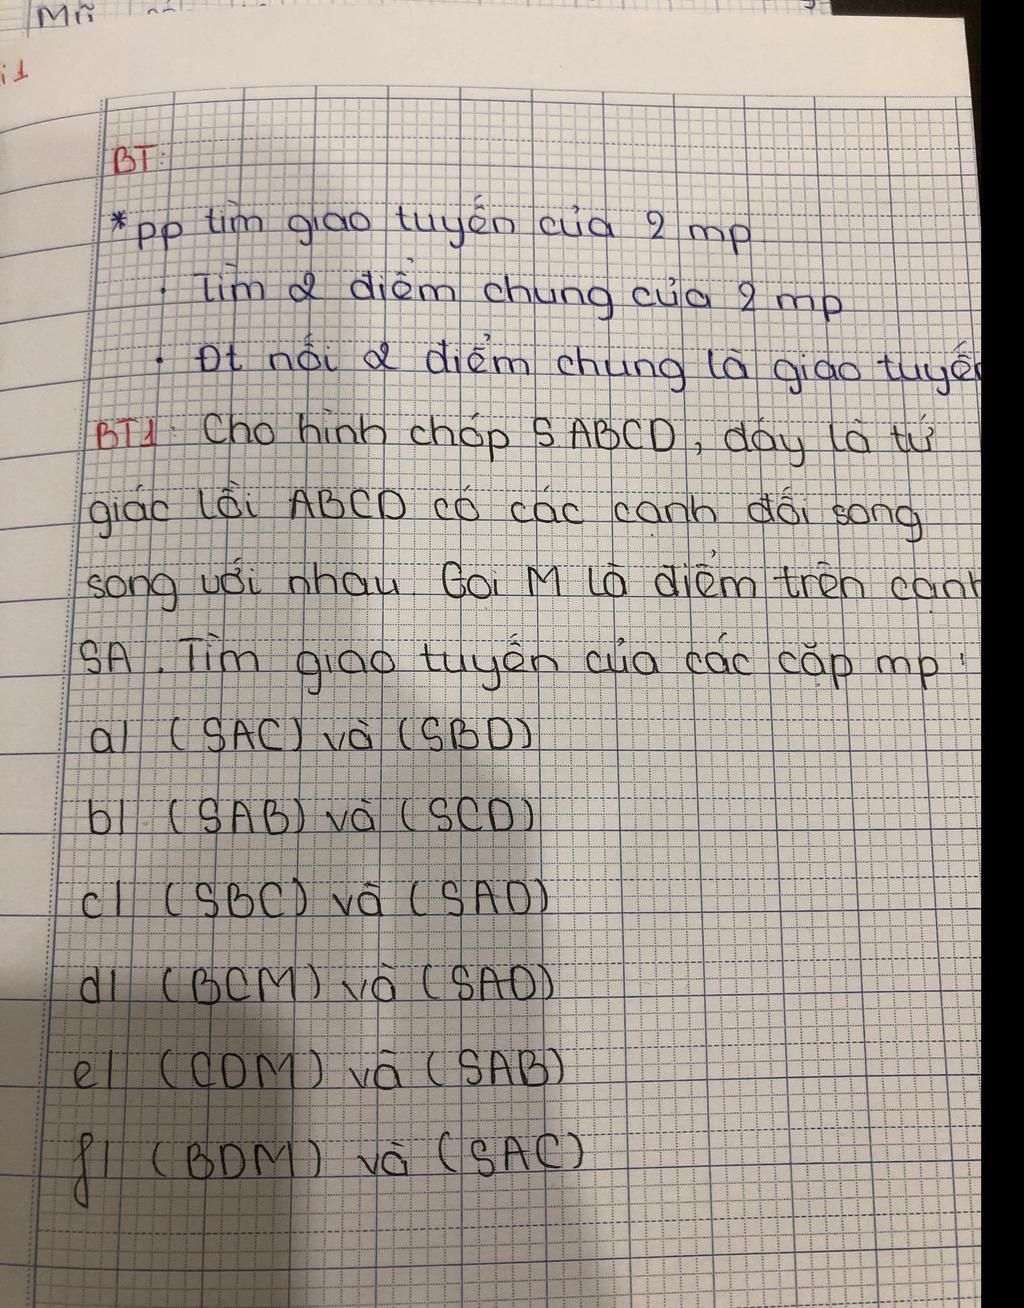 Mĩ
i1
BT:
*pp tìm giao tuyến của 2 mp
. Tìm 2 điểm chung của 2 mp
. Đt nối 2 điểm chung là giao tuyến
BT1: Cho hình chóp SABCD, đáy là tứ
giác lồi ABCD có các cạnh đối song
song với nhau Gọi M là điểm trên cạnh
SA. Tìm giao tuyến của các cặp mp:
a) (SAC) và (SBD)
b) (SAB) và (SCD)
c) (SBC) và (SAD)
d) (BCM) và (SAD)
e) (CDM) và (SAB)
f) (BDM) và (SAC)